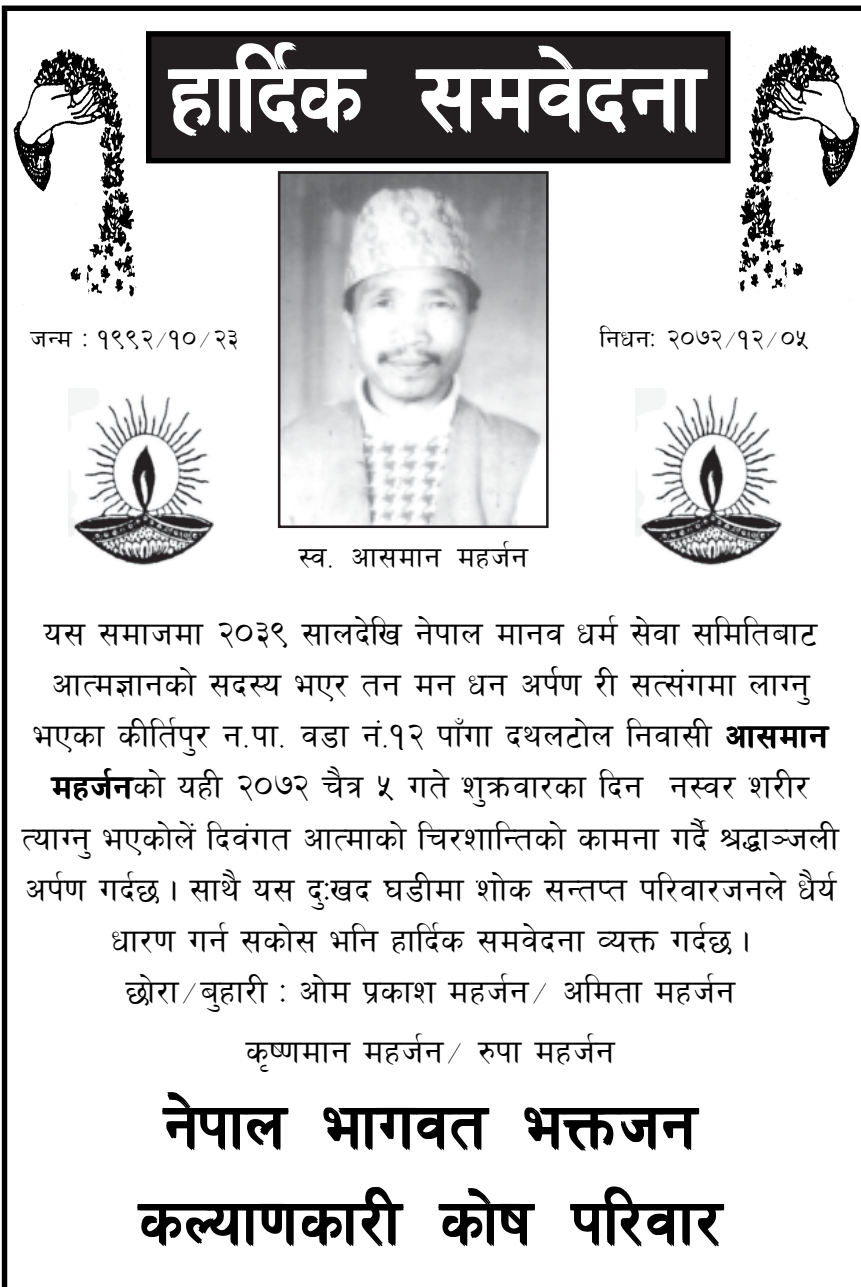 हार्दिक समवेदना
जन्म : १९९२/१०/२३
निधन: २०७२/१२/०५
स्व. आसमान महर्जन
यस समाजमा २०३९ सालदेखि नेपाल मानव धर्म सेवा समितिबाट
आत्मज्ञानको सदस्य भएर तन मन धन अर्पण री सत्संगमा लाग्नु
भएका कीर्तिपुर न.पा. वडा नं.१२ पाँगा दथलटोल निवासी आसमान
महर्जनको यही २०७२ चैत्र ५ गते शुक्रवारका दिन नस्वर शरीर
त्याग्नु भएकोलें दिवंगत आत्माको चिरशान्तिको कामना गर्दै श्रद्धाञ्जली
अर्पण गर्दछ । साथै यस दुःखद घडीमा शोक सन्तप्त परिवारजनले धैर्य
धारण गर्न सकोस भनि हार्दिक समवेदना व्यक्त गर्दछ ।
छोरा/बुहारी : ओम प्रकाश महर्जन/ अमिता महर्जन
कृष्णमान महर्जन/ रुपा महर्जन
नेपाल भागवत भक्तजन
कल्याणकारी कोष परिवार